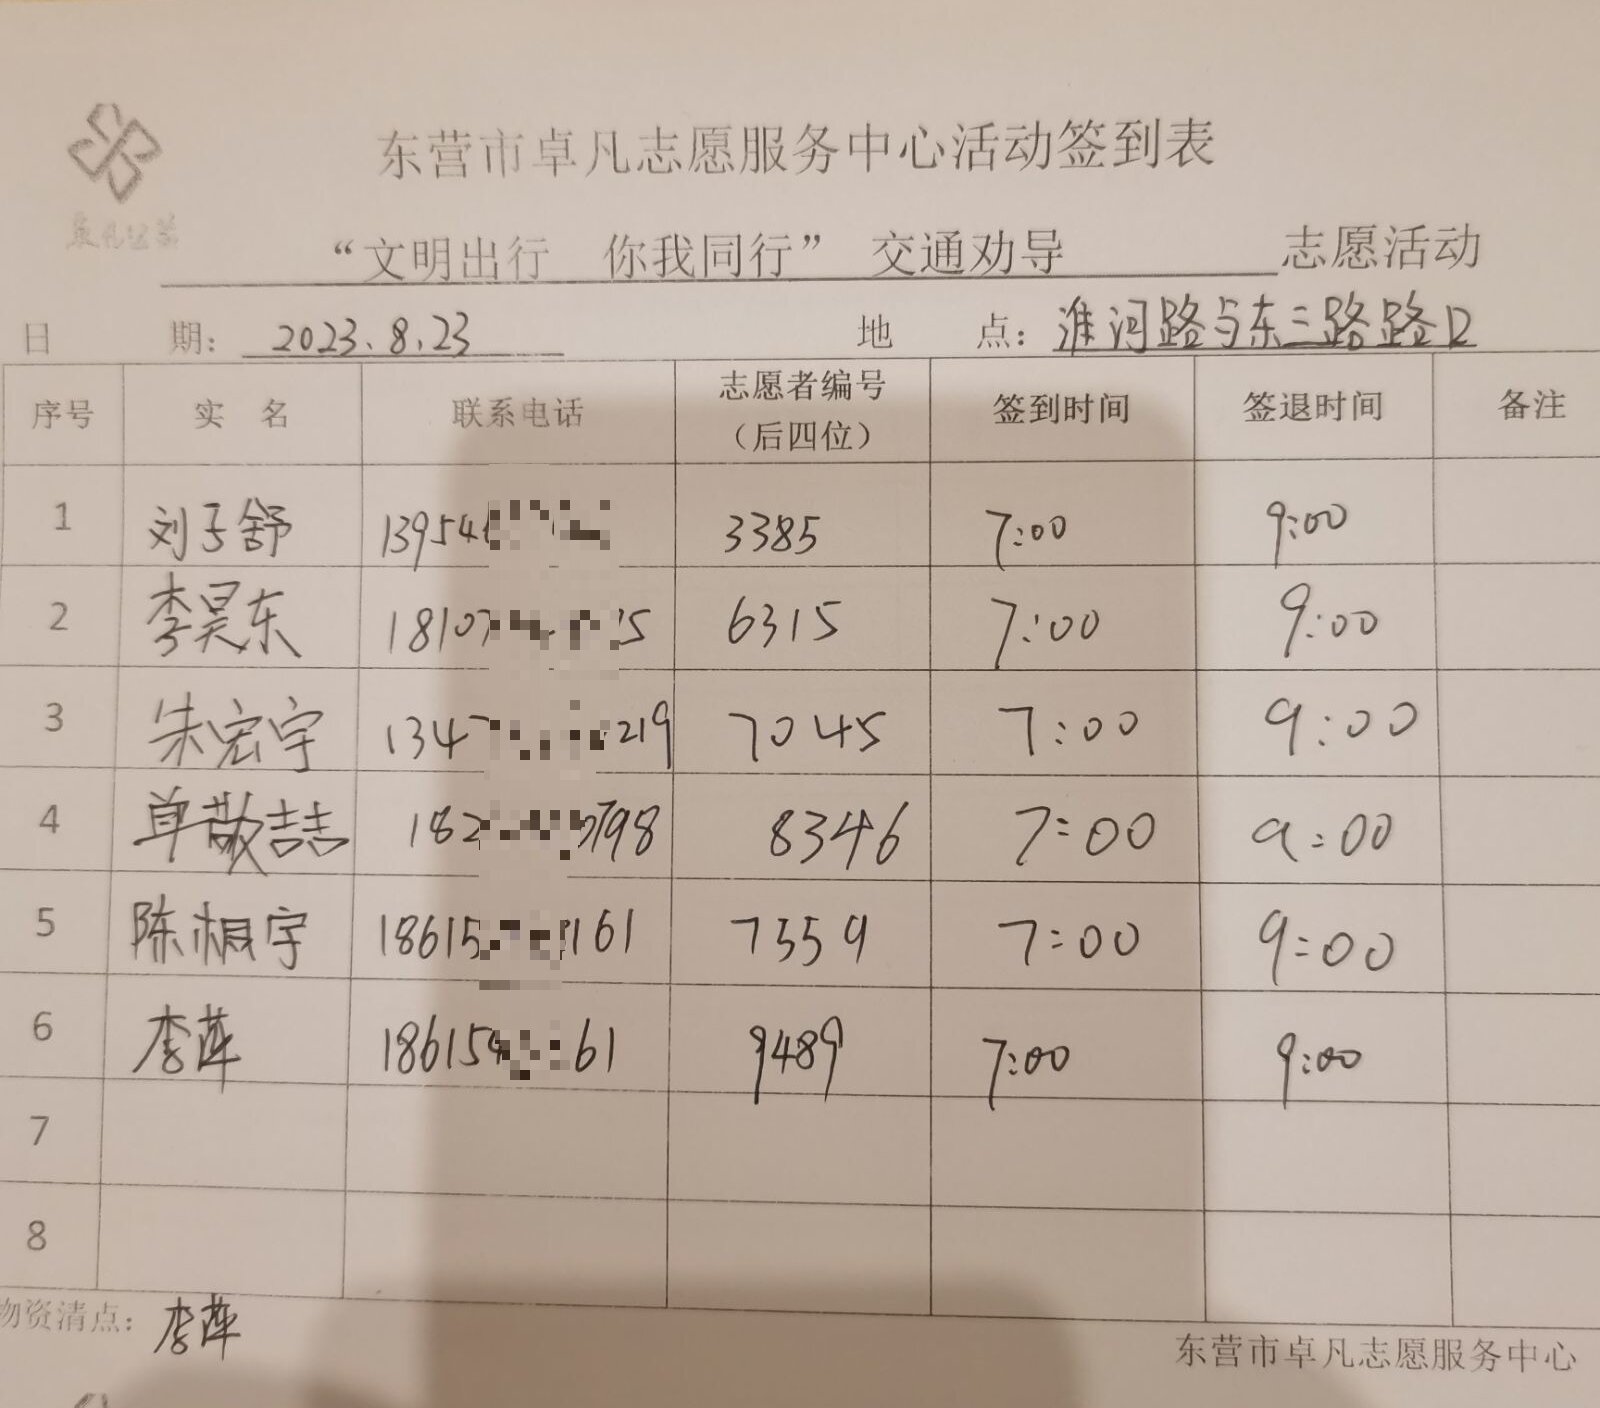 卓凡公益
东营市卓凡志愿服务中心活动签到表
“文明出行 你我同行” 交通劝导 志愿活动
日 期: 2023.8.23 地 点: 淮河路与东三路路口
序号 实 名 联系电话 志愿者编号（后四位） 签到时间 签退时间 备注
1 刘子舒 13954 3385 7:00 9:00
2 李昊东 18107 5 6315 7:00 9:00
3 朱宏宇 134 219 7045 7:00 9:00
4 单敬喆 182 798 8346 7:00 9:00
5 陈 宇 18615 161 7559 7:00 9:00
6 李萍 18615 61 9489 7:00 9:00
7
8
物资清点: 李萍
东营市卓凡志愿服务中心